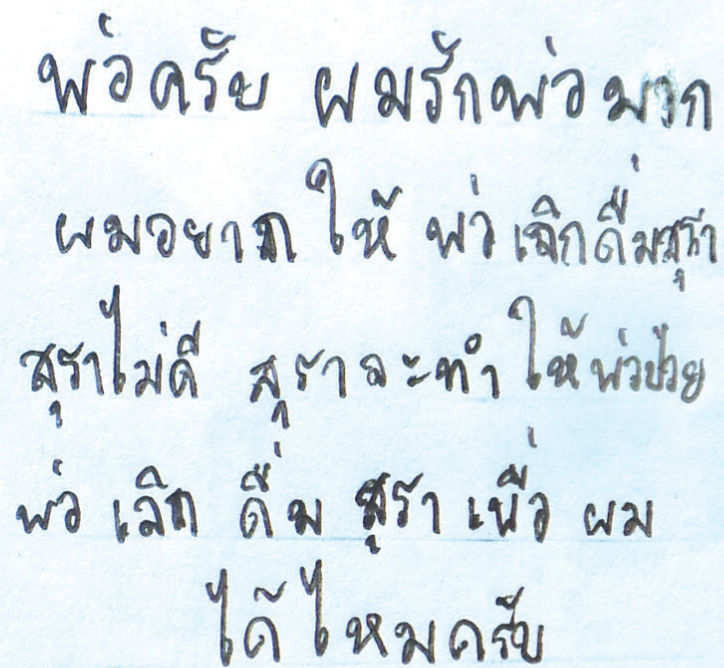 พ่อครับ ผมรักพ่อมาก
ผมอยากให้ พ่อ เลิกดื่มสุรา
สุราไม่ดี สุราจะทำให้พ่อป่วย
พ่อ เลิก ดื่ม สุรา เพื่อ ผม
ได้ไหมครับ